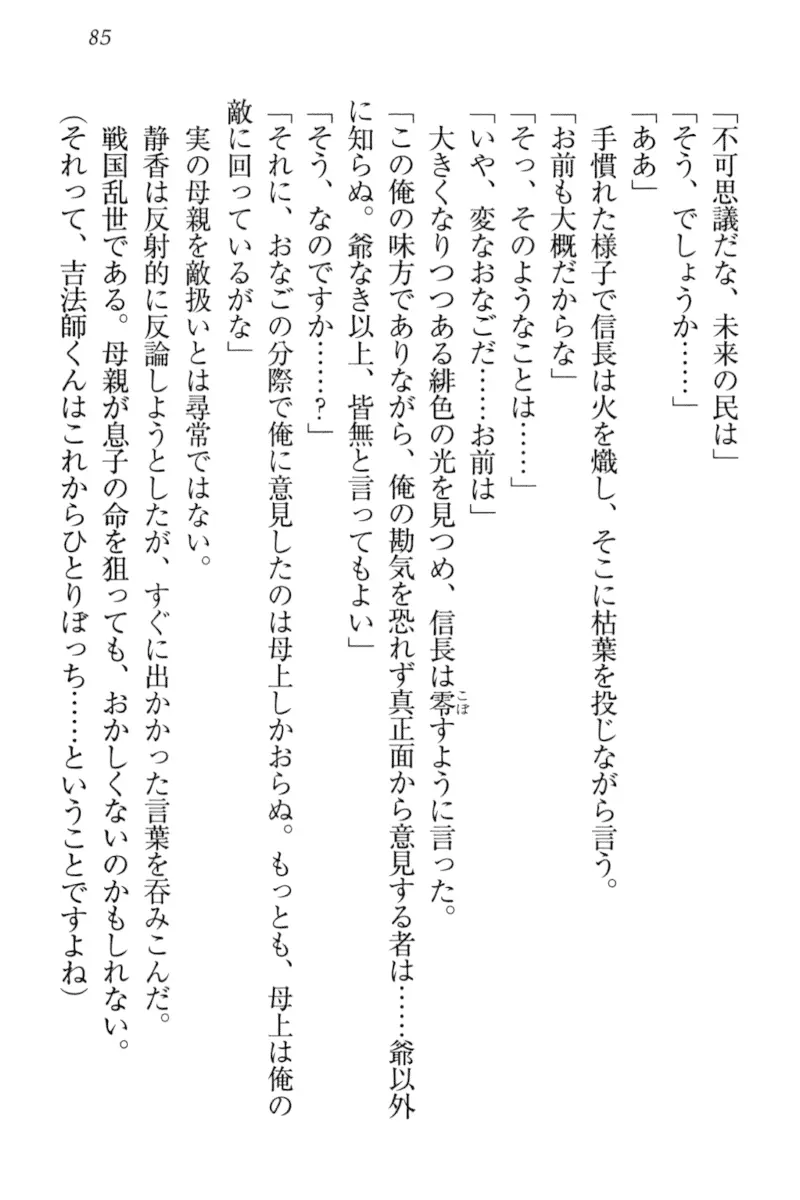 85
「不可思議だな、未来の民は」
「そう、でしょうか……」
「ああ」
手慣れた様子で信長は火を熾し、そこに枯葉を投じながら言う。
「お前も大概だからな」
「そっ、そのようなことは……」
「いや、変なおなごだ……お前は」
大きくなりつつある緋色の光を見つめ、信長は零すように言った。
こぼ
「この俺の味方でありながら、俺の勘気を恐れず真正面から意見する者は……爺以外
に知らぬ。爺なき以上、皆無と言ってもよい」
「そう、なのですか……?」
「それに、おなごの分際で俺に意見したのは母上しかおらぬ。もっとも、母上は俺の
敵に回っているがな」
実の母親を敵扱いとは尋常ではない。
静香は反射的に反論しようとしたが、すぐに出かかった言葉を呑みこんだ。
戦国乱世である。母親が息子の命を狙っても、おかしくないのかもしれない。
(それって、吉法師くんはこれからひとりぼっち……ということですよね)